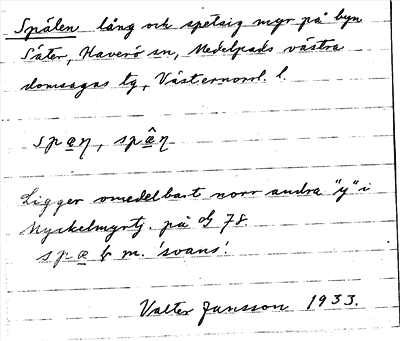 Spålen lång och spetsig myr på byn
Säter, Haverö sn, Medelpads västra
domsagas tg, Västernorrl. l.
Ligger omedelbart norr andra "y" i
Myckelmyrtj. på GK 78.
m. 'svans'.
Valter Jansson 1933.